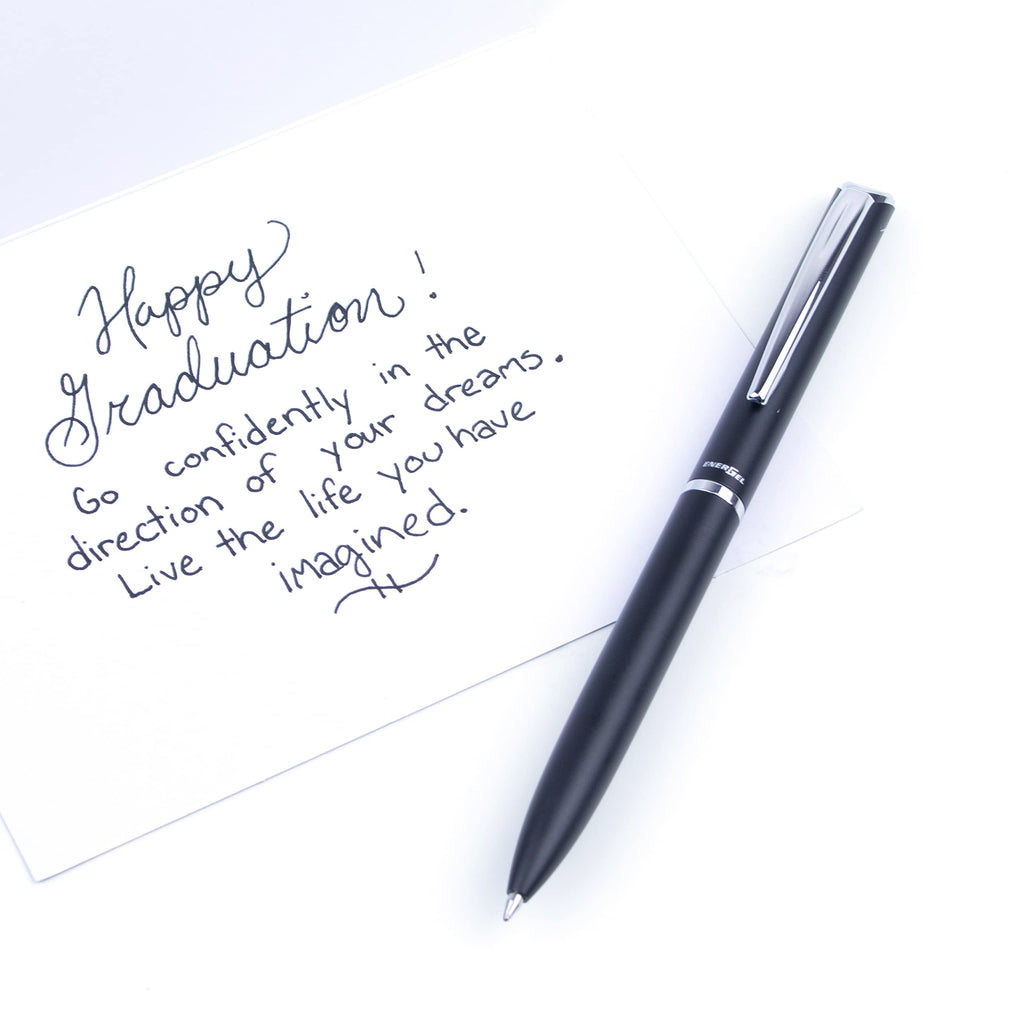 Happy
Graduation!
Go confidently in the
direction of your dreams.
Live the life you have
imagined.
ENERGEL